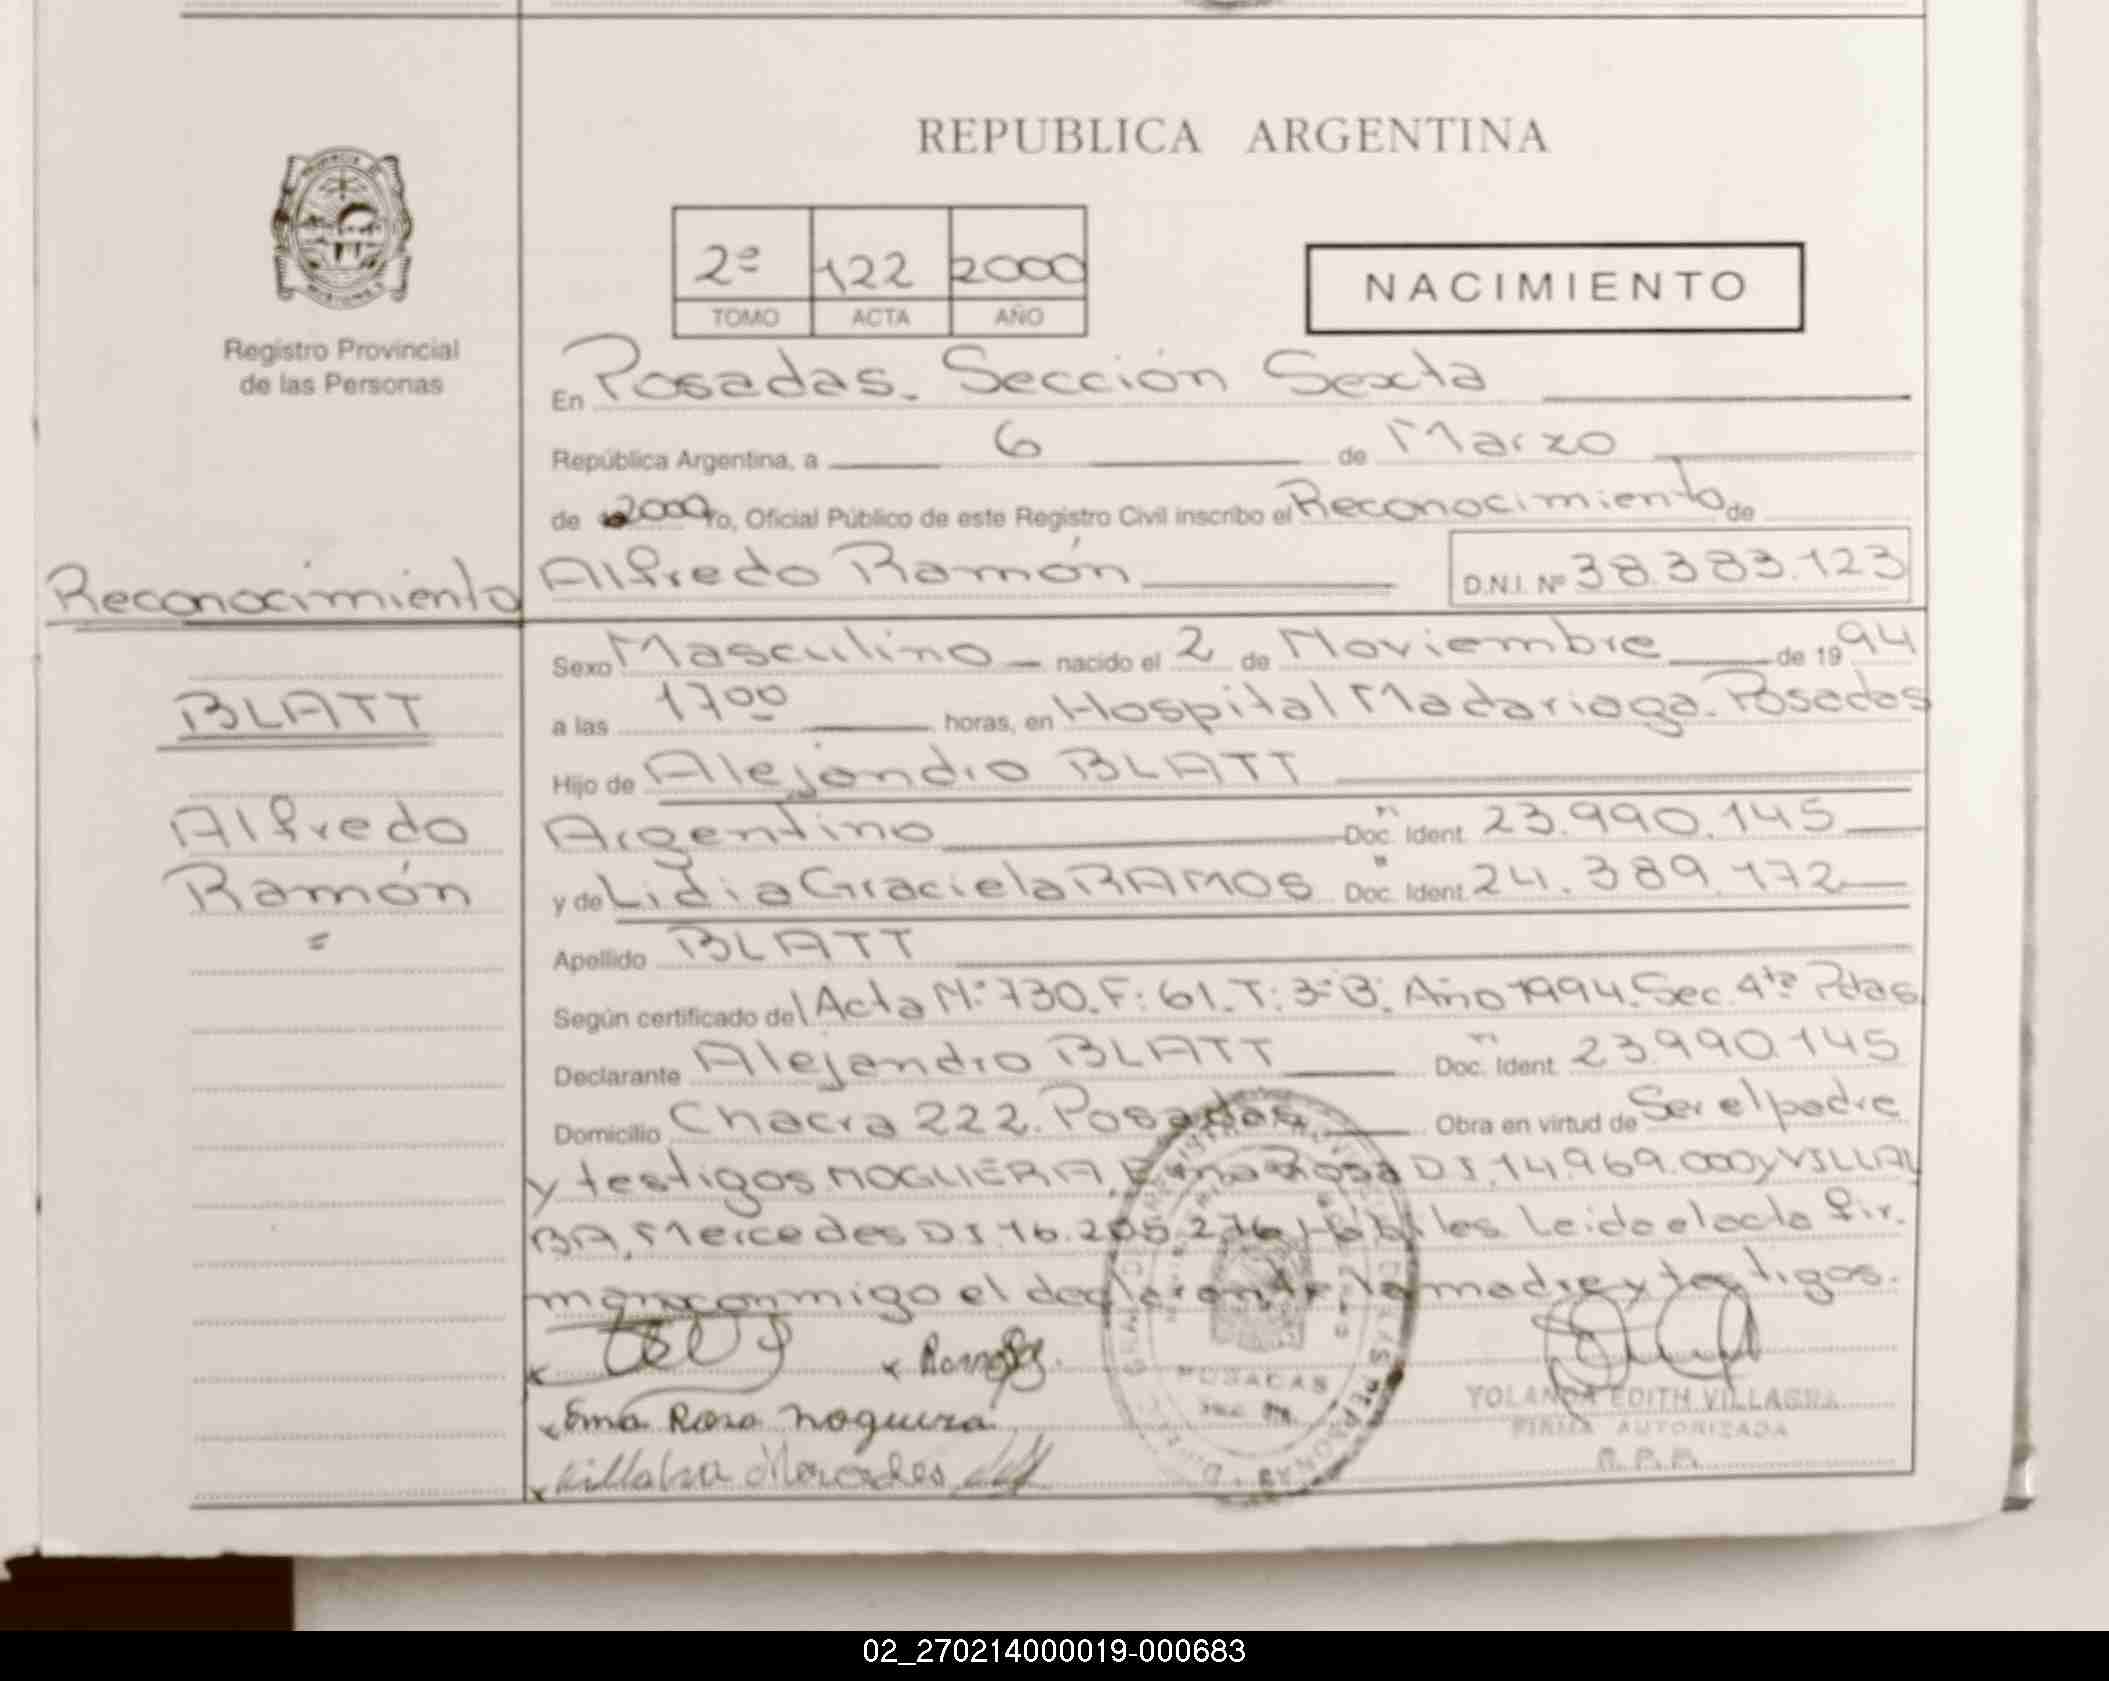 REPUBLICA ARGENTINA
2º 122 2000
TOMO ACTA AÑO
NACIMIENTO
Registro Provincial
de las Personas
En Posadas. Sección Sexta
República Argentina, a 6 de Marzo
de 2000 Yo, Oficial Público de este Registro Civil inscribo el Reconocimiento de
Reconocimiento
Alfredo Ramón D.N.I. Nº 38.383.123
BLATT
Alfredo
Ramón
Sexo Masculino nacido el 2 de Noviembre de 1994
a las 17oo horas, en Hospital Madariaga. Posadas
Hijo de Alejandro BLATT
Argentino Doc. Ident. 23.990.145
y de Lidia Graciela RAMOS Doc. Ident. 24.389.172
Apellido BLATT
Según certificado del Acta Nº 730. F: 61. T: 3º B. Año 1994. Sec. 4ta Pdas
Declarante Alejandro BLATT Doc. Ident. 23.990.145
Domicilio Chacra 222. Posadas Obra en virtud de Ser el padre
y testigos NOGUERA, Ema Rosa DI. 14.969.000 y VILLAL
BA, Mercedes DI. 16.205.276 Hábiles Leida el acta fir.
man conmigo el declarante la madre y testigos.
x x Ramos
x Ema Rosa Noguera
x Villalba Mercedes
POSADAS
YOLANDA EDITH VILLAGRA
FIRMA AUTORIZADA
R. P. P.
02_270214000019-000683